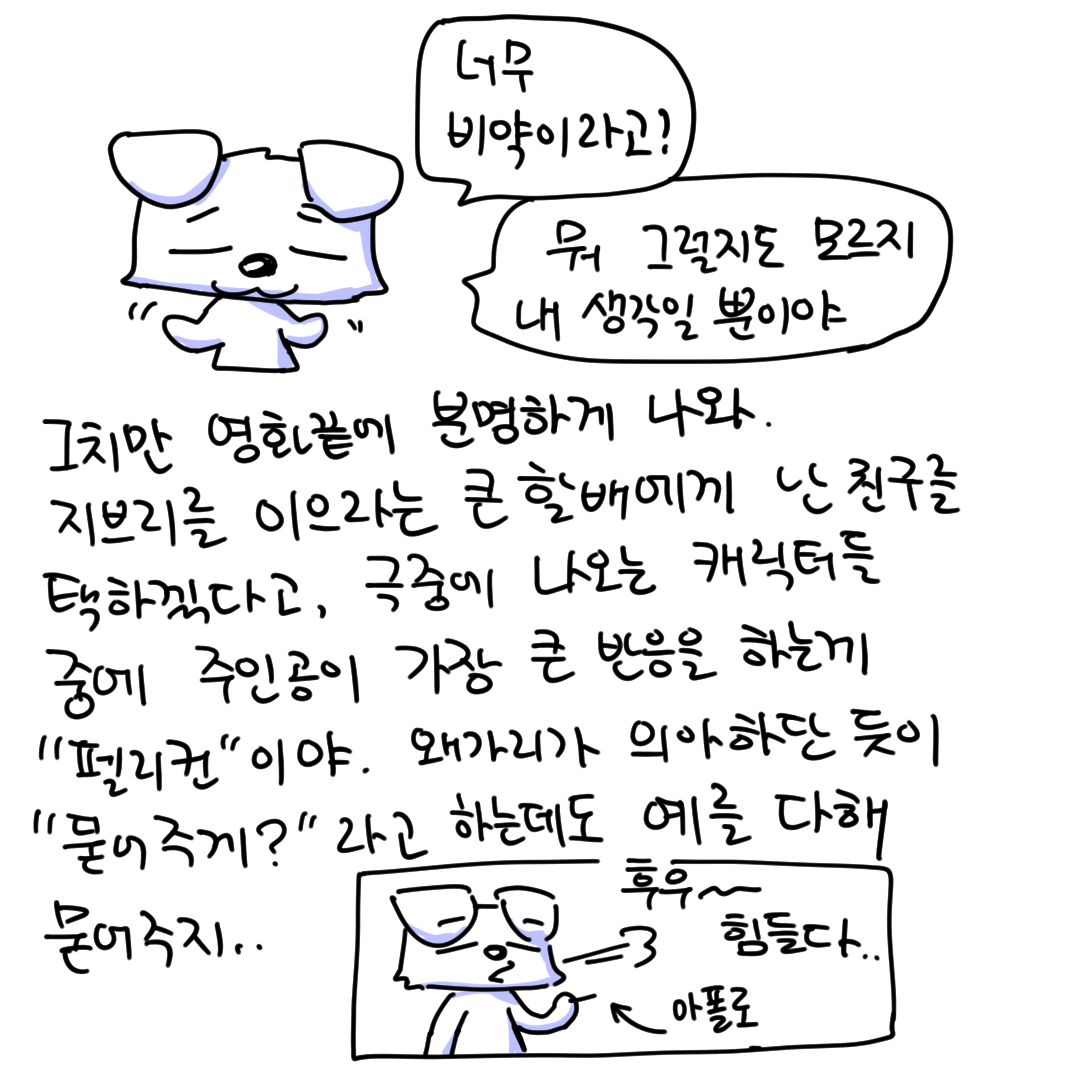 너무
비약이라고!
뭐 그럴지도 모르지
내 생각일 뿐이야
그치만 영화끝에 분명하게 나와.
지브리를 이으라는 큰 할배에게 난 친구를
택하겠다고, 극중에 나오는 캐릭터들
중에 주인공이 가장 큰 반응을 하는게
"펠리컨"이야. 왜가리가 의아하단 듯이
"묻어주게?"라고 하는데도 예를 다해
묻어주지..
후우~
힘들다..
아폴로